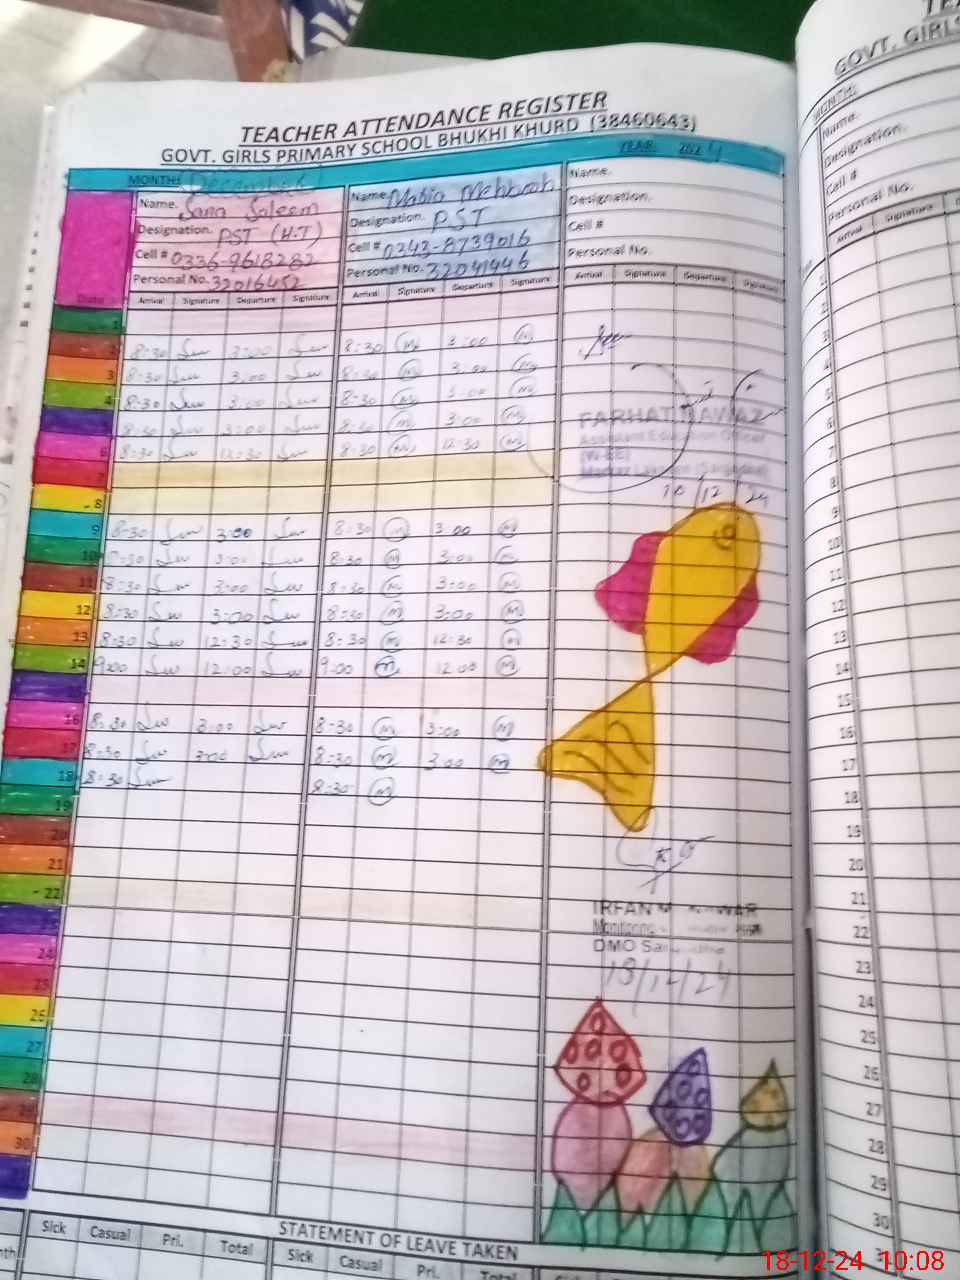 TEACHER ATTENDANCE REGISTER
GOVT. GIRLS PRIMARY SCHOOL BHUKHI KHURD (38460643)
MONTH: December YEAR: 2024
Name. Sana Saleem
Designation. PST (H.T)
Cell # 0336-9618282
Personal No. 32016452
Name. Mehboob
Designation. PST
Cell # 0343-8739016
Personal No. 32041446
Name.
Designation.
Cell #
Personal No.
Date Arrival Signature Departure Signature Arrival Signature Departure Signature Arrival Signature Departure Signature
1
2 8:30 3:00 8:30 m 3:00 m
3 8:30 3:00 8:30 m 3:00 m
4 8:30 3:00 8:30 m 3:00 m
8:30 3:00 8:30 m 3:00 m
6 8:30 12:30 8:30 m 12:30 m
7
8
9 8:30 3:00 8:30 m 3:00 m
10 8:30 3:00 8:30 m 3:00 m
11 8:30 3:00 8:30 m 3:00 m
12 8:30 3:00 8:30 m 3:00 m
13 8:30 12:30 8:30 m 12:30 m
14 9:00 12:00 9:00 m 12:00 m
16 8:30 3:00 8:30 m 3:00 m
17 8:30 3:00 8:30 m 3:00 m
18 8:30 8:30 m
19
20
21
22
24
25
26
27
28
29
30
FARHAT NAWAZ
Assistant Education Officer
(W-EE)
Markaz
10/12/24
IRFAN
Monitoring
DMO
18/12/24
STATEMENT OF LEAVE TAKEN
Sick Casual Pri. Total Sick Casual Pri. Total
GOVT. GIRLS
MONTH:
Name.
Designation.
Cell #
Personal No.
Arrival Signature
1
2
3
4
5
6
7
8
9
10
11
12
13
14
15
16
17
18
19
20
21
22
23
24
25
26
27
28
29
30
18-12-24 10:08